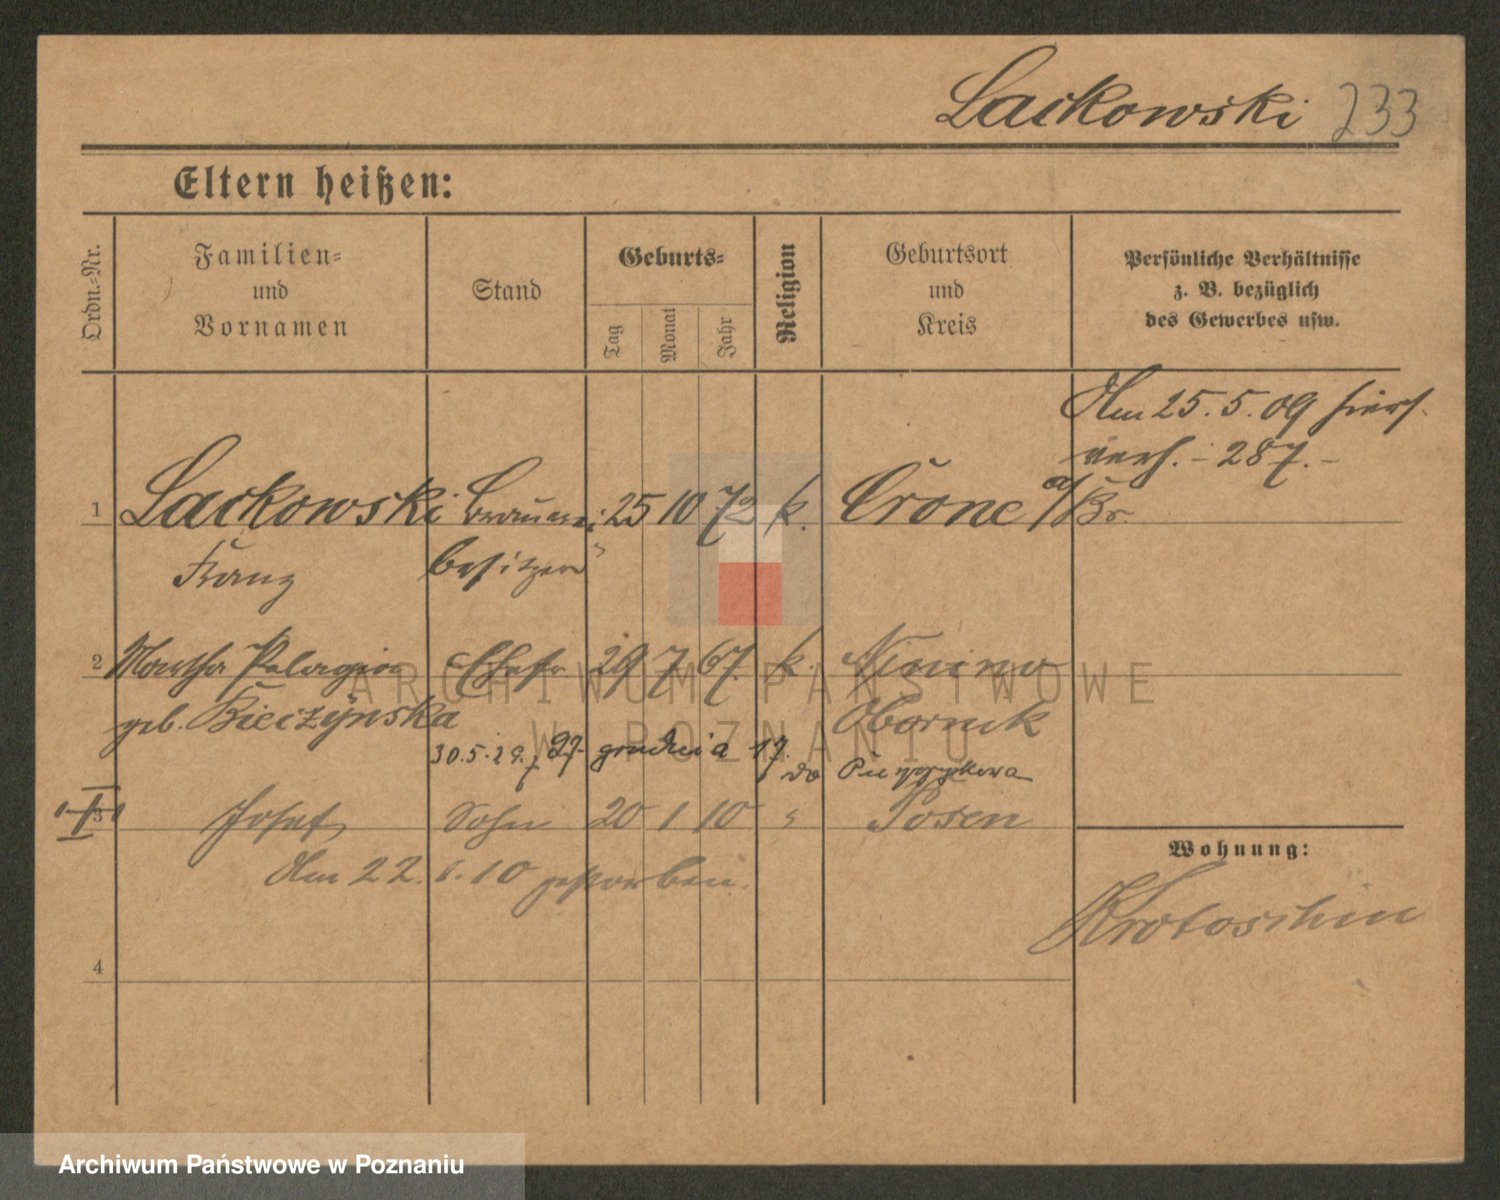 Lackowski 233
Eltern heißen:
Ordn.-Nr.
Familien-
und
Vornamen
Stand
Geburts-
Tag
Monat
Jahr
Religion
Geburtsort
und
Kreis
Persönliche Verhältnisse
z. B. bezüglich
des Gewerbes usw.
Am 25.5.09 hiers.
verh. - 287. -
1 Lackowski Brauerei 25 10 72 k. Crone a/Br.
Franz besitzer
2 Martha Pelagia Ehefr. 29 7 67. k. Ninino
geb. Bieczynska Obornik
30.5.29. 27. grudnia 17.
do
3 Josef Sohn 20 1 10 " Posen
Am 22. 6. 10 gestorben.
Wohnung:
Krotoschin
4
ARCHIWUM PAŃSTWOWE
W POZNANIU
Archiwum Państwowe w Poznaniu